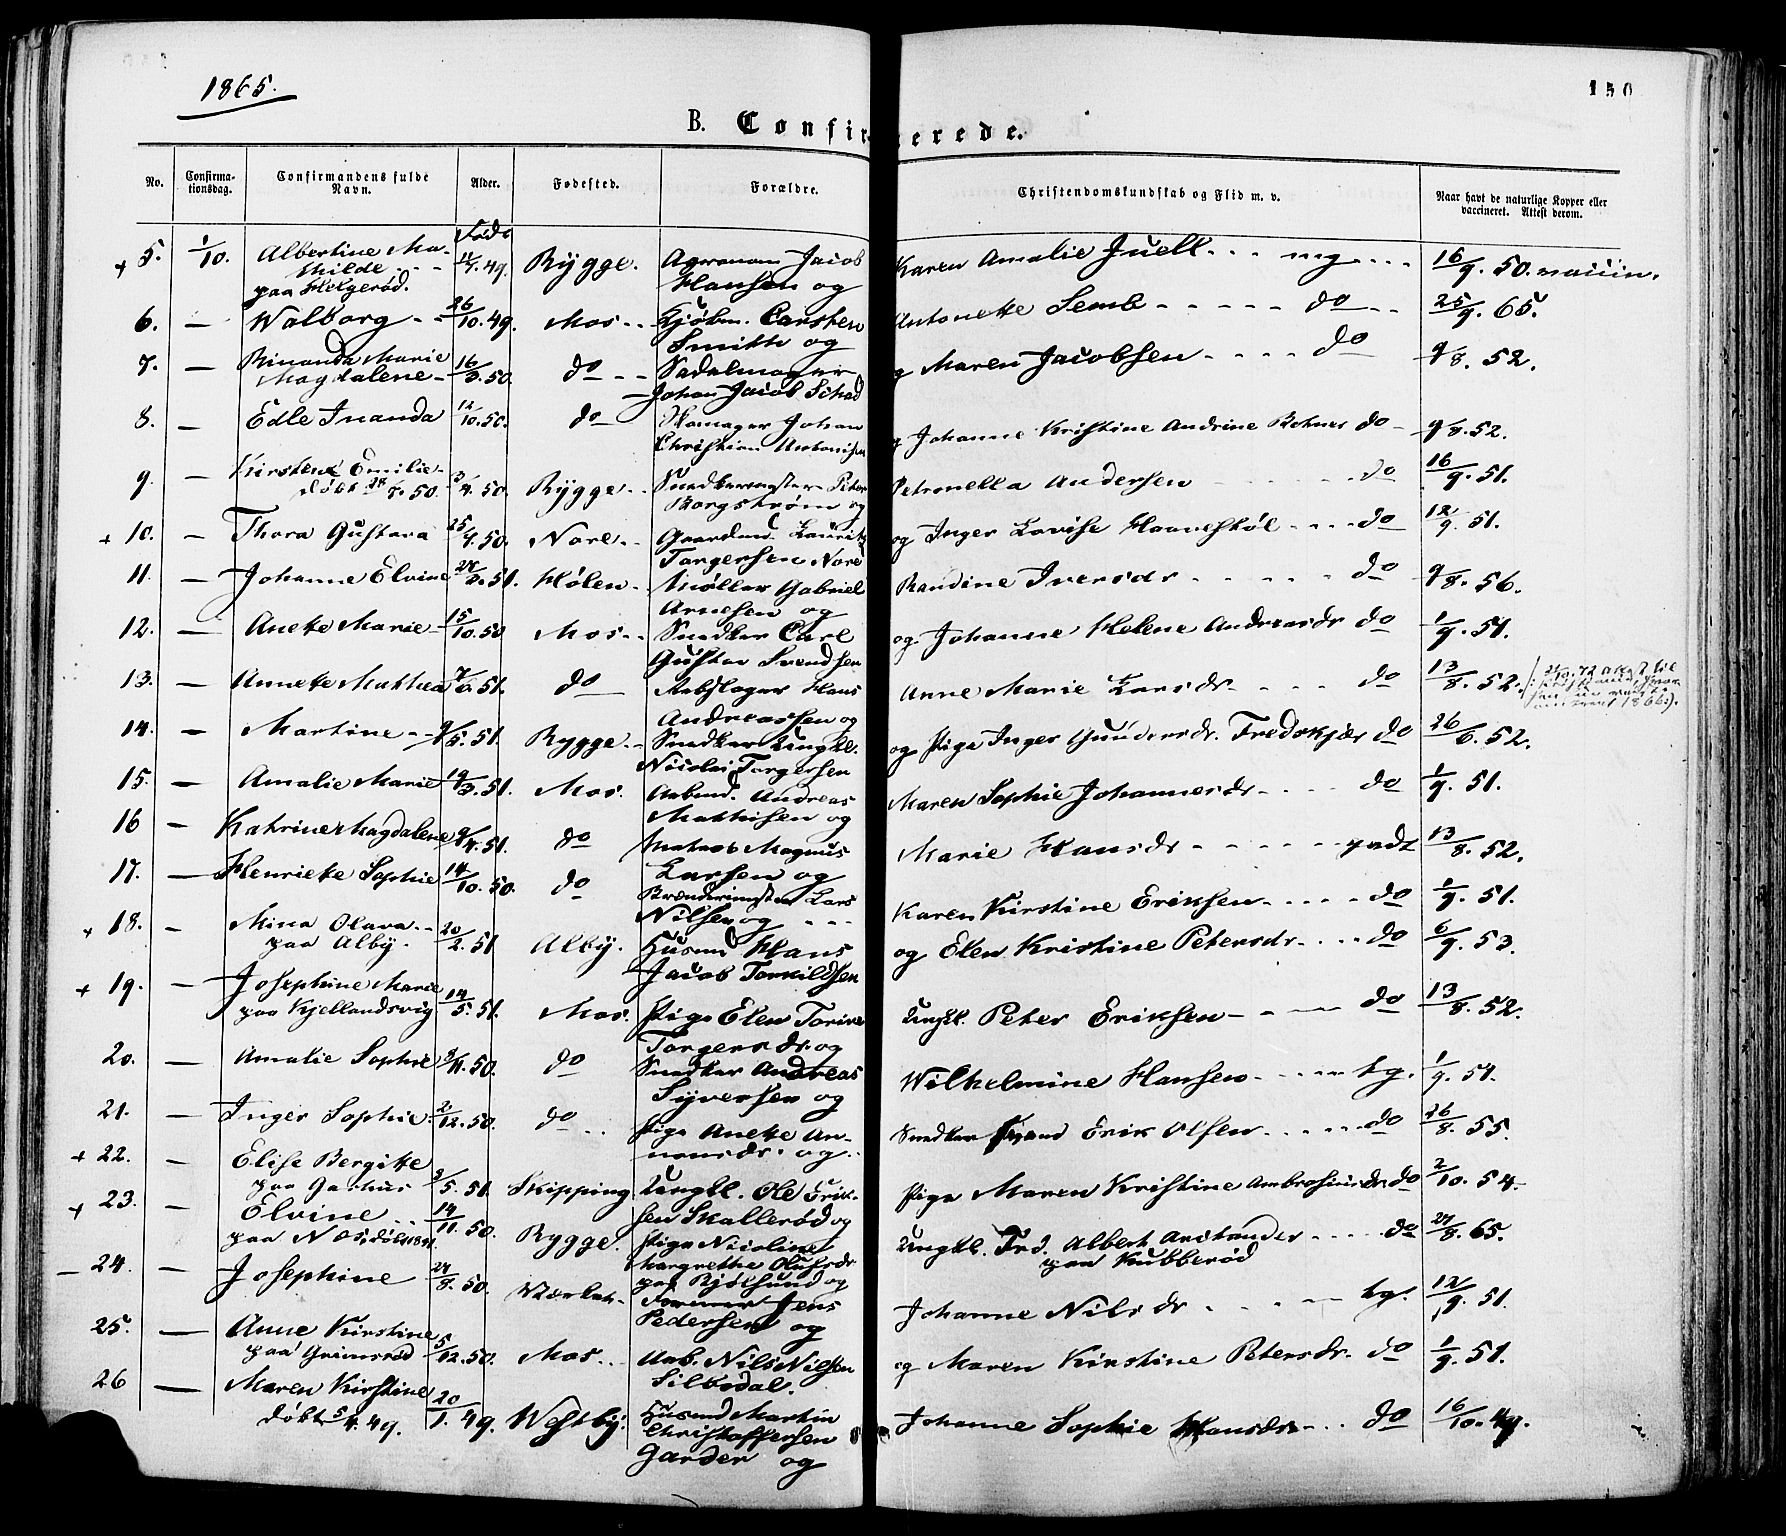 1865.
150
B. Confirmerede.
No.
Confirma-
tionsdag.
Confirmandens fulde
Navn.
Alder.
Fødested.
Forældre.
Christendomskundskab og Flid m. v.
Naar havt de naturlige Kopper eller
vaccineret. Attest derom.
+ 5. 1/10. Albertine Ma- Født
thilde 49. Rygge. Agronom Jacob Karen Amalie Juell - - - mg - - - 16/9. 50.
paa Helgerød. Hansen og
6. — Walborg - - 26/10. 49. Mos - - Kjøbm. Carsten Antonette Semb - - - - - do - - 25/9. 65.
Smith og
7. — Marie
Magdalene - 16/3. 50. do - - Sadelmager og Maren Jacobsen - - - - do 9/8. 52.
Johan Jacob
8. — Edle Inanda 12/10. 50. do Johan og Johanne Kristine Andrine do - 9/8. 52.
Christian Antonisen
9. — Kirstene Emilie
døbt 50. 3/4. 50. Rygge - - Snedkermester Peter Petronella Andersen - - - - do 16/9. 51.
Borgstrøm og
+ 10. - Thora Gustava 25/4. 50. Nore - - Gaardmd. Lauritz og Inger Lovise - - - do 12/9. 51.
Torgersen Nore
11. — Johanne Elvine 51. Hølen - Møller Gabriel Randine Iversdr - - - - - do 9/8. 56.
Arnesen og
12. — Anette Marie - 15/10. 50 Mos - - Snedker Carl og Johanne Helene Andreasdr do 1/9. 51.
Gustav Svendsen
13. — Annette Mathea 51. do Rebslager Hans Anne Marie Larsdr - - - - do 13/8. 52.
Andreassen og
14. — Martine - - 9/5. 51. Rygge - - Snedker Ungkl. og Pige Inger Gundersdr. Fredskjær do 26/6. 52.
Nicolai Torgersen
15. — Amalie Marie 19/3. 51. Mos. Arbmd. Andreas Maren Sophie Johannesdr - - - - do 1/9. 51.
Mathisen og
16 — Katrine Magdalene 9/4. 51. do Matros Magnus Marie Hansdr - - - - - - godt 13/8. 52.
Larsen og
17. — Henriette Sophie 14/10. 50. do Lars Karen Kirstine Eriksen - - - - - do 1/9. 51.
Nilsen og - - -
+ 18. - Mina Olava - - 20/2. 51 Alby. Husmd Hans og Elen Kristine Petersdr - - - do 6/9. 53.
paa Alby. Jacob Torkildsen
+ 19. — Josephine Marie
paa Kjellandsvig 14/5. 51. Mos. Pige Elen Torine Ungkl. Peter Eriksen - - - - do 13/8. 52.
Torgersdr. og
20. — Amalie Sophie 50. do Snedker Andreas Wilhelmine Hansen - - - - - tg. 1/9. 51.
Syversen og
21. — Inger Sophie 2/12. 50. do - - Pige Anette An- Snedker Erik Olsen - - - - - do 26/8. 55.
og - -
+ 22. — Elise Bergitte
paa Garhus 2/5. 51. Skipping Ungkl. Ole Erik- Pige Maren Kristine do 2/10. 54.
sen Skallerød og
+ 23. — Elvine - - 14/11. 50. Rygge. Pige Nicoline Ungkl. Frd. Albert - - - - - do 65.
paa N Margrethe Olufsdr paa Kubberød
— 24. — Josephine 24/8. 50. paa og
Jens Johanne Nilsdr - - - - - tg. 12/9. 51.
Pedersen og
25. — Anne Kirstine
paa Grimsrød 5/12. 50. Mos - - Arb. Nils Nilsen og Maren Kirstine Petersdr. - do 1/9. 51.
Silbodal.
26 — Maren Kirstine 20/1. 49. Westby. Husmd Martin Johanne Sophie Hansdr - - do 16/10. 49.
døbt 5/4. 49. Christoffersen
Garder og